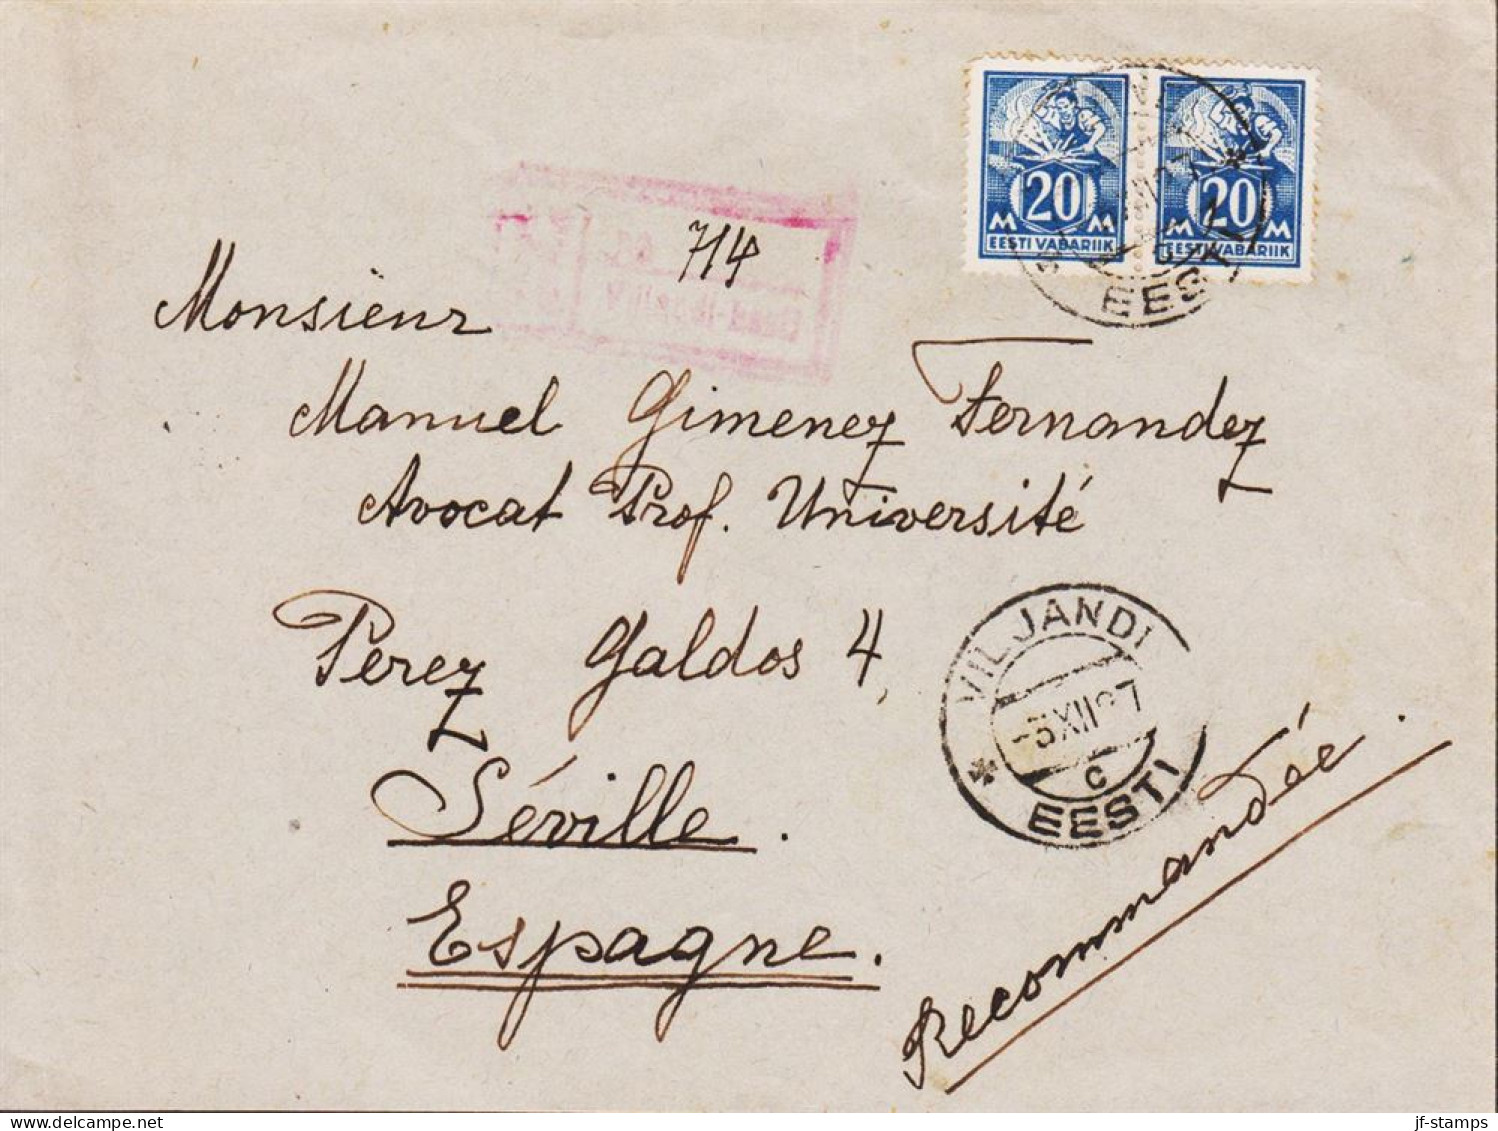 20 M M
EESTI VABARIIK
20 M M
EESTI VABARIIK
EESTI
714
Monsieur
Manuel Gimenez Fernandez
Avocat Prof. Université
Perez Galdos 4,
Séville.
Espagne.
VILJANDI
-3 XII 27
C
EESTI
Recommandée.
jf-stamps